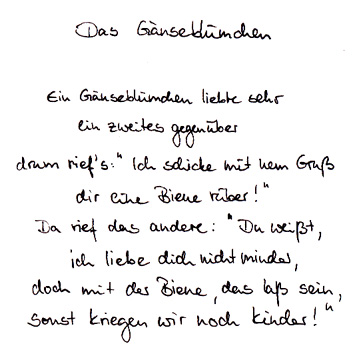 Das Gänseblümchen
Ein Gänseblümchen liebte sehr
ein zweites gegenüber
drum rief's: "Ich schicke mit 'nem Gruß
dir eine Biene rüber!"
Da rief das andere: "Du weißt,
ich liebe dich nicht minder,
doch mit der Biene, das laß sein,
sonst kriegen wir noch Kinder!"